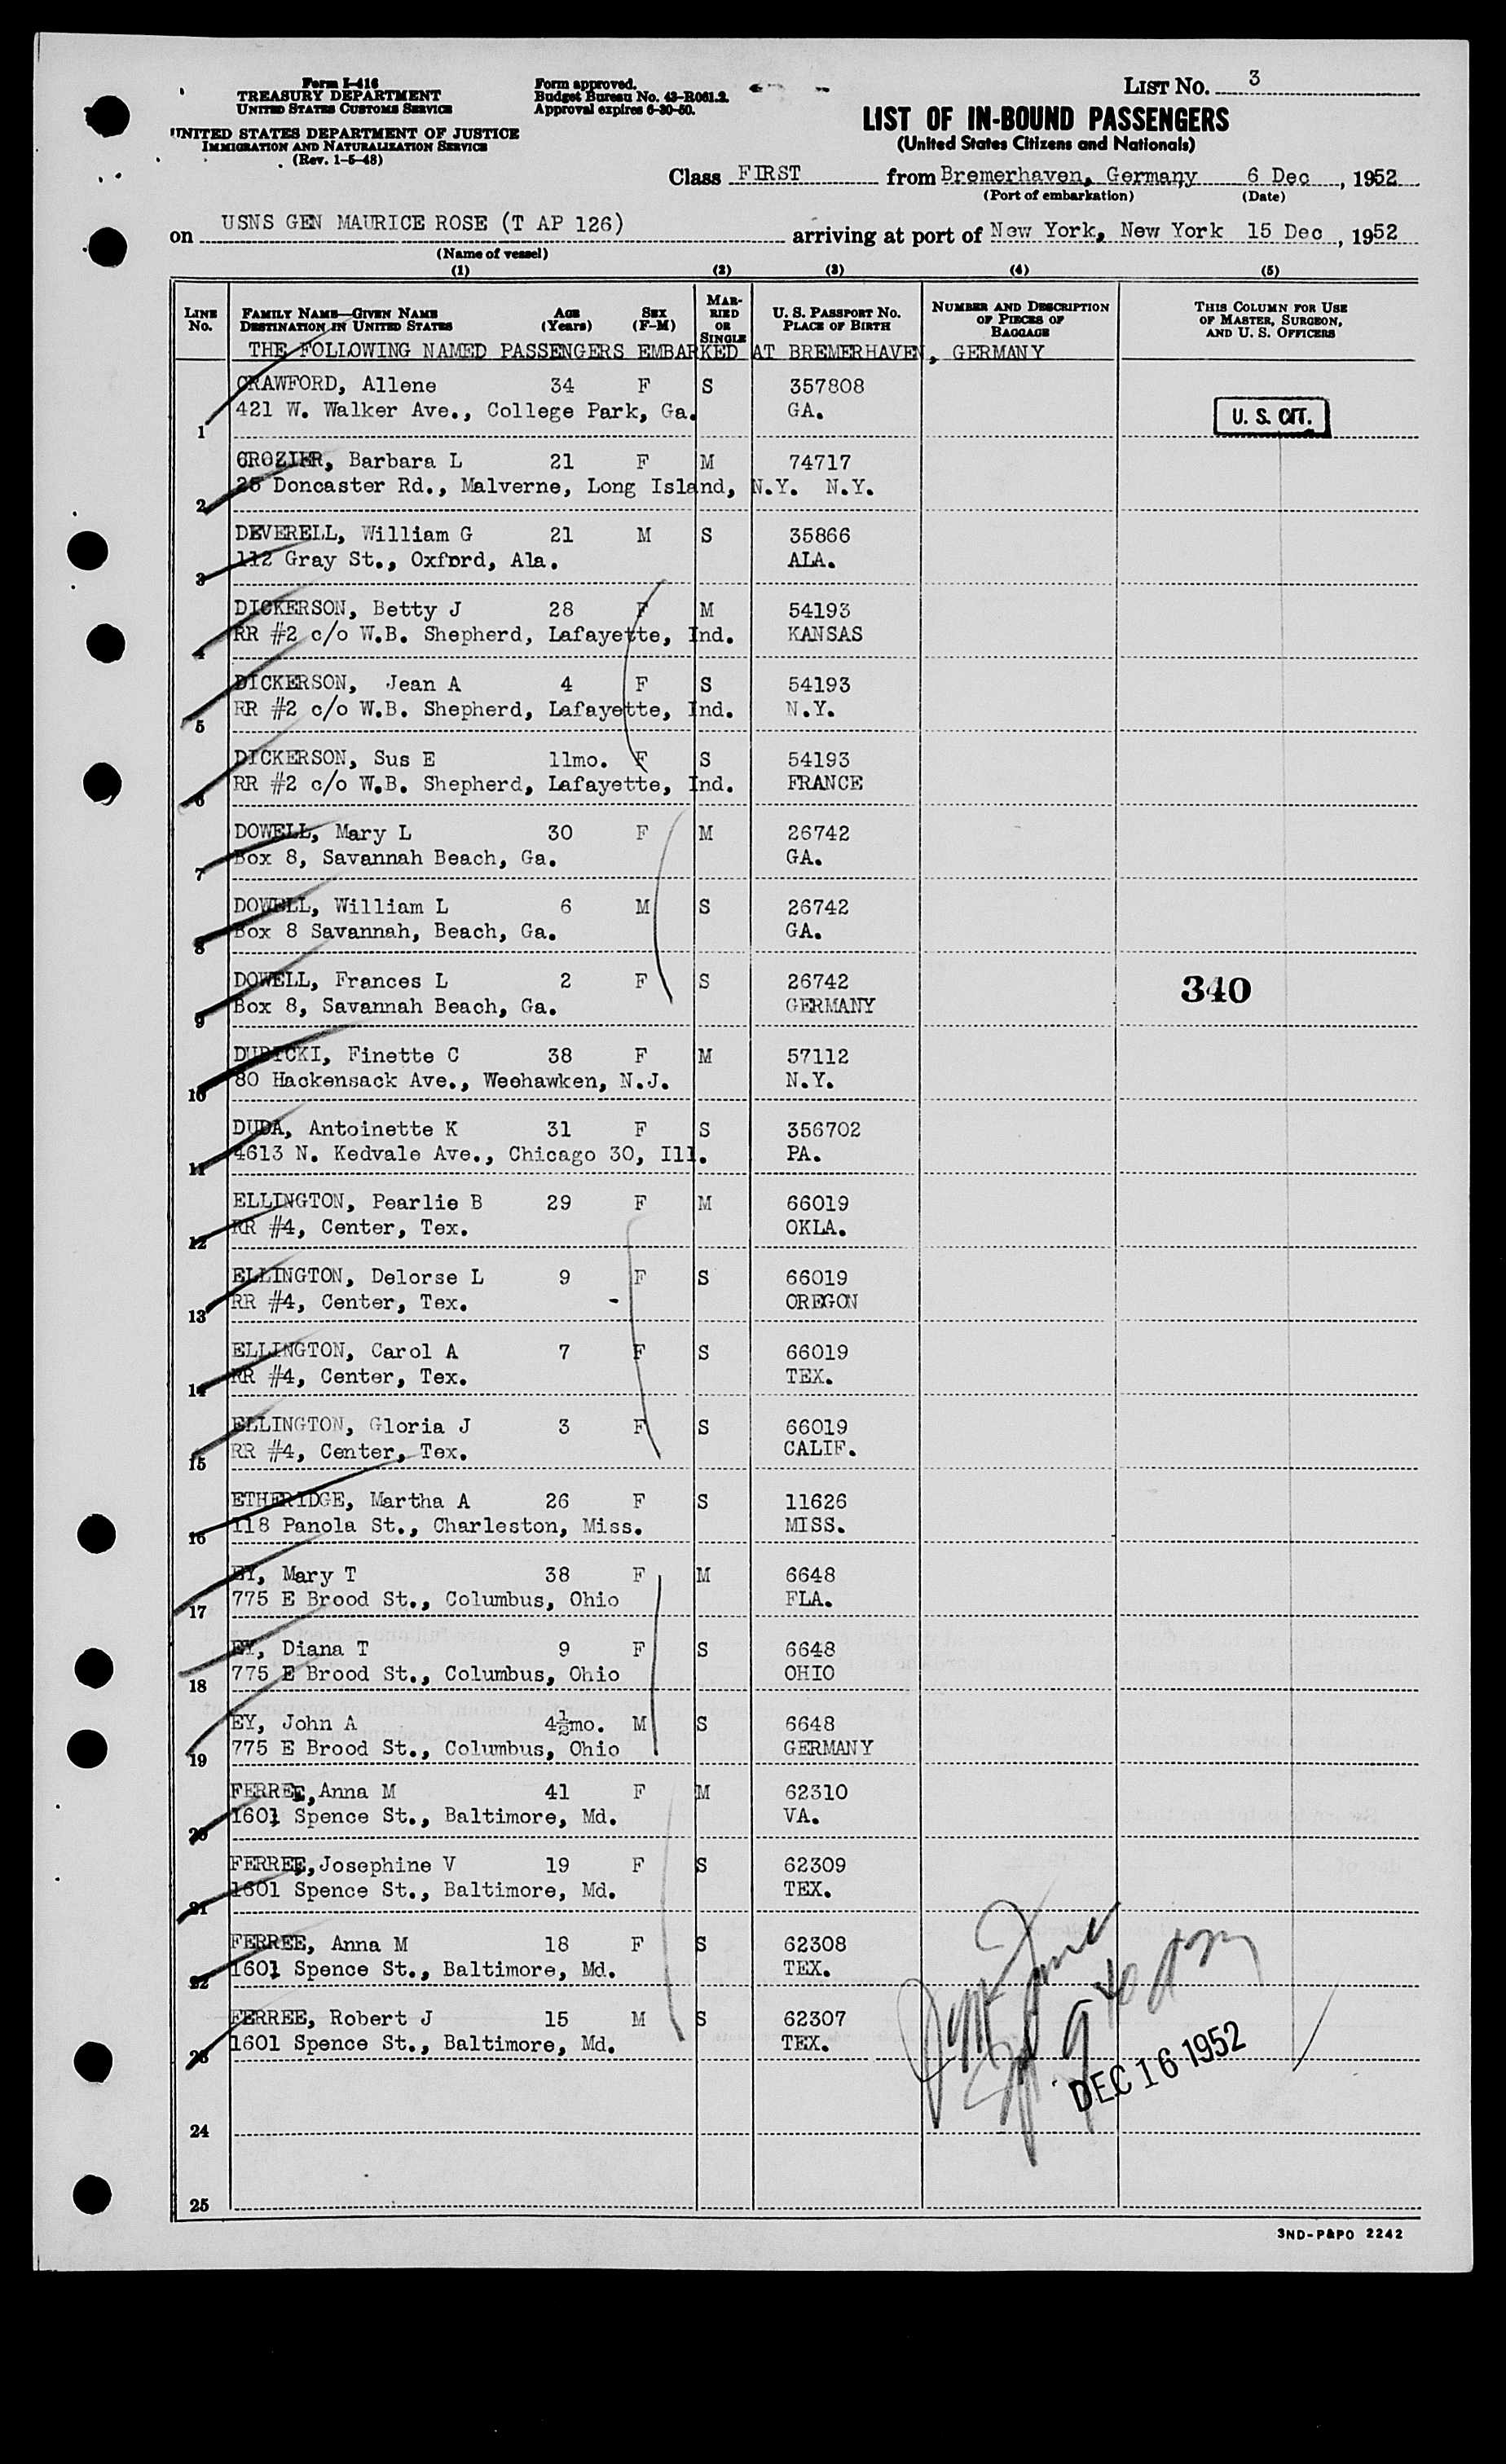 Form I-416
TREASURY DEPARTMENT
UNITED STATES CUSTOMS SERVICE
UNITED STATES DEPARTMENT OF JUSTICE
IMMIGRATION AND NATURALIZATION SERVICE
(Rev. 1-5-48)
Form approved.
Budget Bureau No. 43-R061.2.
Approval expires 6-30-50.
LIST NO. 3
LIST OF IN-BOUND PASSENGERS
(United States Citizens and Nationals)
Class FIRST from Bremerhaven, Germany 6 Dec, 1952
(Port of embarkation) (Date)
on USNS GEN MAURICE ROSE (T AP 126) arriving at port of New York, New York 15 Dec, 1952
(Name of vessel)
(1) (2) (3) (4) (5)
LINE NO. FAMILY NAME—GIVEN NAME DESTINATION IN UNITED STATES AGE (Years) SEX (F-M) MARRIED OR SINGLE U. S. PASSPORT NO. PLACE OF BIRTH NUMBER AND DESCRIPTION OF PIECES OF BAGGAGE THIS COLUMN FOR USE OF MASTER, SURGEON, AND U. S. OFFICERS
THE FOLLOWING NAMED PASSENGERS EMBARKED AT BREMERHAVEN, GERMANY
CRAWFORD, Allene 34 F S 357808
1 421 W. Walker Ave., College Park, Ga. GA. U. S. CIT.
CROZIER, Barbara L 21 F M 74717
2 25 Doncaster Rd., Malverne, Long Island, N.Y. N.Y.
DEVERELL, William G 21 M S 35866
3 112 Gray St., Oxford, Ala. ALA.
DICKERSON, Betty J 28 F M 54193
4 RR #2 c/o W.B. Shepherd, Lafayette, Ind. KANSAS
DICKERSON, Jean A 4 F S 54193
5 RR #2 c/o W.B. Shepherd, Lafayette, Ind. N.Y.
DICKERSON, Sus E 11mo. F S 54193
6 RR #2 c/o W.B. Shepherd, Lafayette, Ind. FRANCE
DOWELL, Mary L 30 F M 26742
7 Box 8, Savannah Beach, Ga. GA.
DOWELL, William L 6 M S 26742
8 Box 8 Savannah, Beach, Ga. GA.
DOWELL, Frances L 2 F S 26742 340
9 Box 8, Savannah Beach, Ga. GERMANY
DUBICKI, Finette C 38 F M 57112
10 80 Hackensack Ave., Weehawken, N.J. N.Y.
DUDA, Antoinette K 31 F S 356702
11 4613 N. Kedvale Ave., Chicago 30, Ill. PA.
ELLINGTON, Pearlie B 29 F M 66019
12 RR #4, Center, Tex. OKLA.
ELLINGTON, Delorse L 9 F S 66019
13 RR #4, Center, Tex. OREGON
ELLINGTON, Carol A 7 F S 66019
14 RR #4, Center, Tex. TEX.
ELLINGTON, Gloria J 3 F S 66019
15 RR #4, Center, Tex. CALIF.
ETHERIDGE, Martha A 26 F S 11626
16 118 Panola St., Charleston, Miss. MISS.
EY, Mary T 38 F M 6648
17 775 E Brood St., Columbus, Ohio FLA.
EY, Diana T 9 F S 6648
18 775 E Brood St., Columbus, Ohio OHIO
EY, John A 4½mo. M S 6648
19 775 E Brood St., Columbus, Ohio GERMANY
FERREE, Anna M 41 F M 62310
20 1601 Spence St., Baltimore, Md. VA.
FERREE, Josephine V 19 F S 62309
21 1601 Spence St., Baltimore, Md. TEX.
FERREE, Anna M 18 F S 62308
22 1601 Spence St., Baltimore, Md. TEX.
FERREE, Robert J 15 M S 62307
23 1601 Spence St., Baltimore, Md. TEX.
DEC 16 1952
24
25
3ND-P&PO 2242